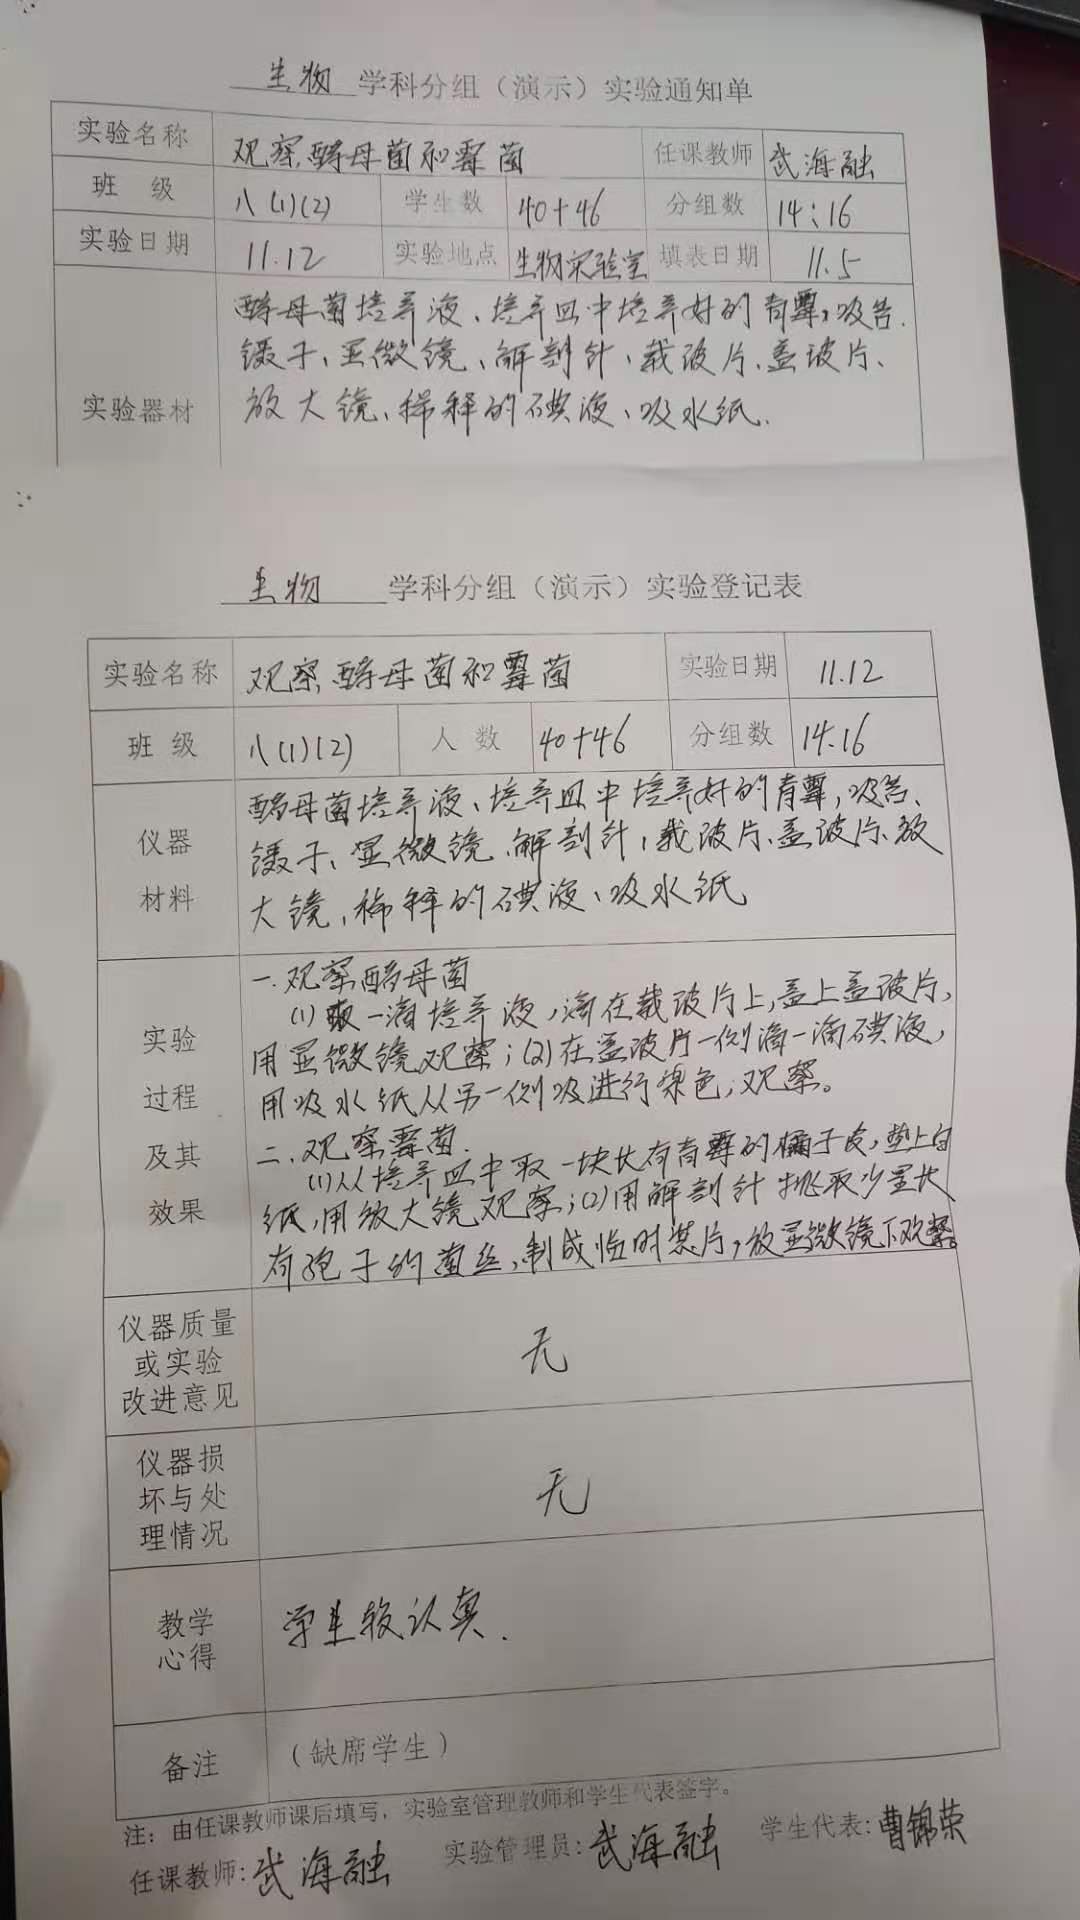 生物 学科分组（演示）实验通知单
实验名称 观察酵母菌和霉菌 任课教师 武海融
班 级 八(1)(2) 学生数 40+46 分组数 14;16
实验日期 11.12 实验地点 生物实验室 填表日期 11.5
实验器材 酵母菌培养液、培养皿中培养好的青霉,吸管.
镊子、显微镜、解剖针、载玻片、盖玻片、
放大镜、稀释的碘液、吸水纸.
生物 学科分组（演示）实验登记表
实验名称 观察酵母菌和霉菌 实验日期 11.12
班 级 八(1)(2) 人 数 40+46 分组数 14.16
仪器
材料
酵母菌培养液、培养皿中培养好的青霉,吸管、
镊子、显微镜、解剖针、载玻片、盖玻片、放
大镜、稀释的碘液、吸水纸
实验
过程
及其
效果
一.观察酵母菌
(1)取一滴培养液,滴在载玻片上,盖上盖玻片,
用显微镜观察;(2)在盖玻片一侧滴一滴碘液,
用吸水纸从另一侧吸进行染色,观察。
二.观察霉菌.
(1)从培养皿中取一块长有青霉的橘子皮,垫上白
纸,用放大镜观察;(2)用解剖针挑取少量长
有孢子的菌丝,制成临时装片,放显微镜下观察。
仪器质量
或实验
改进意见
无
仪器损
坏与处
理情况
无
教学
心得
学生较认真.
备注 （缺席学生）
注：由任课教师课后填写，实验室管理教师和学生代表签字。
任课教师:武海融 实验管理员:武海融 学生代表:曹锦荣